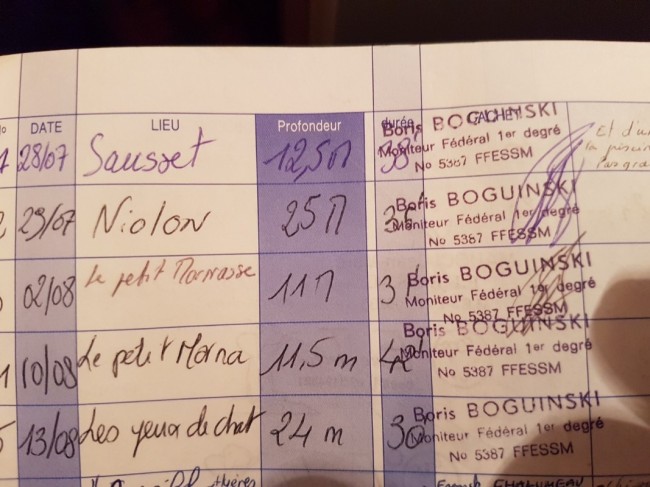 DATE LIEU Profondeur durée CACHET
28/07 Sausset 12,5 m 38' Boris BOGUINSKI
Moniteur Fédéral 1er degré
No 5387 FFESSM
Et d'un
la piscine
29/07 Niolon 25 m Boris BOGUINSKI
Moniteur Fédéral 1er degré
No 5387 FFESSM
02/08 Le petit Mornasse 11 m Boris BOGUINSKI
Moniteur Fédéral 1er degré
No 5387 FFESSM
10/08 Le petit Morna 11,5 m 42' Boris BOGUINSKI
Moniteur Fédéral 1er degré
No 5387 FFESSM
13/08 Les yeux de chat 24 m 30 Boris BOGUINSKI
Moniteur Fédéral 1er degré
No 5387 FFESSM
Hyères CHALUMEAU